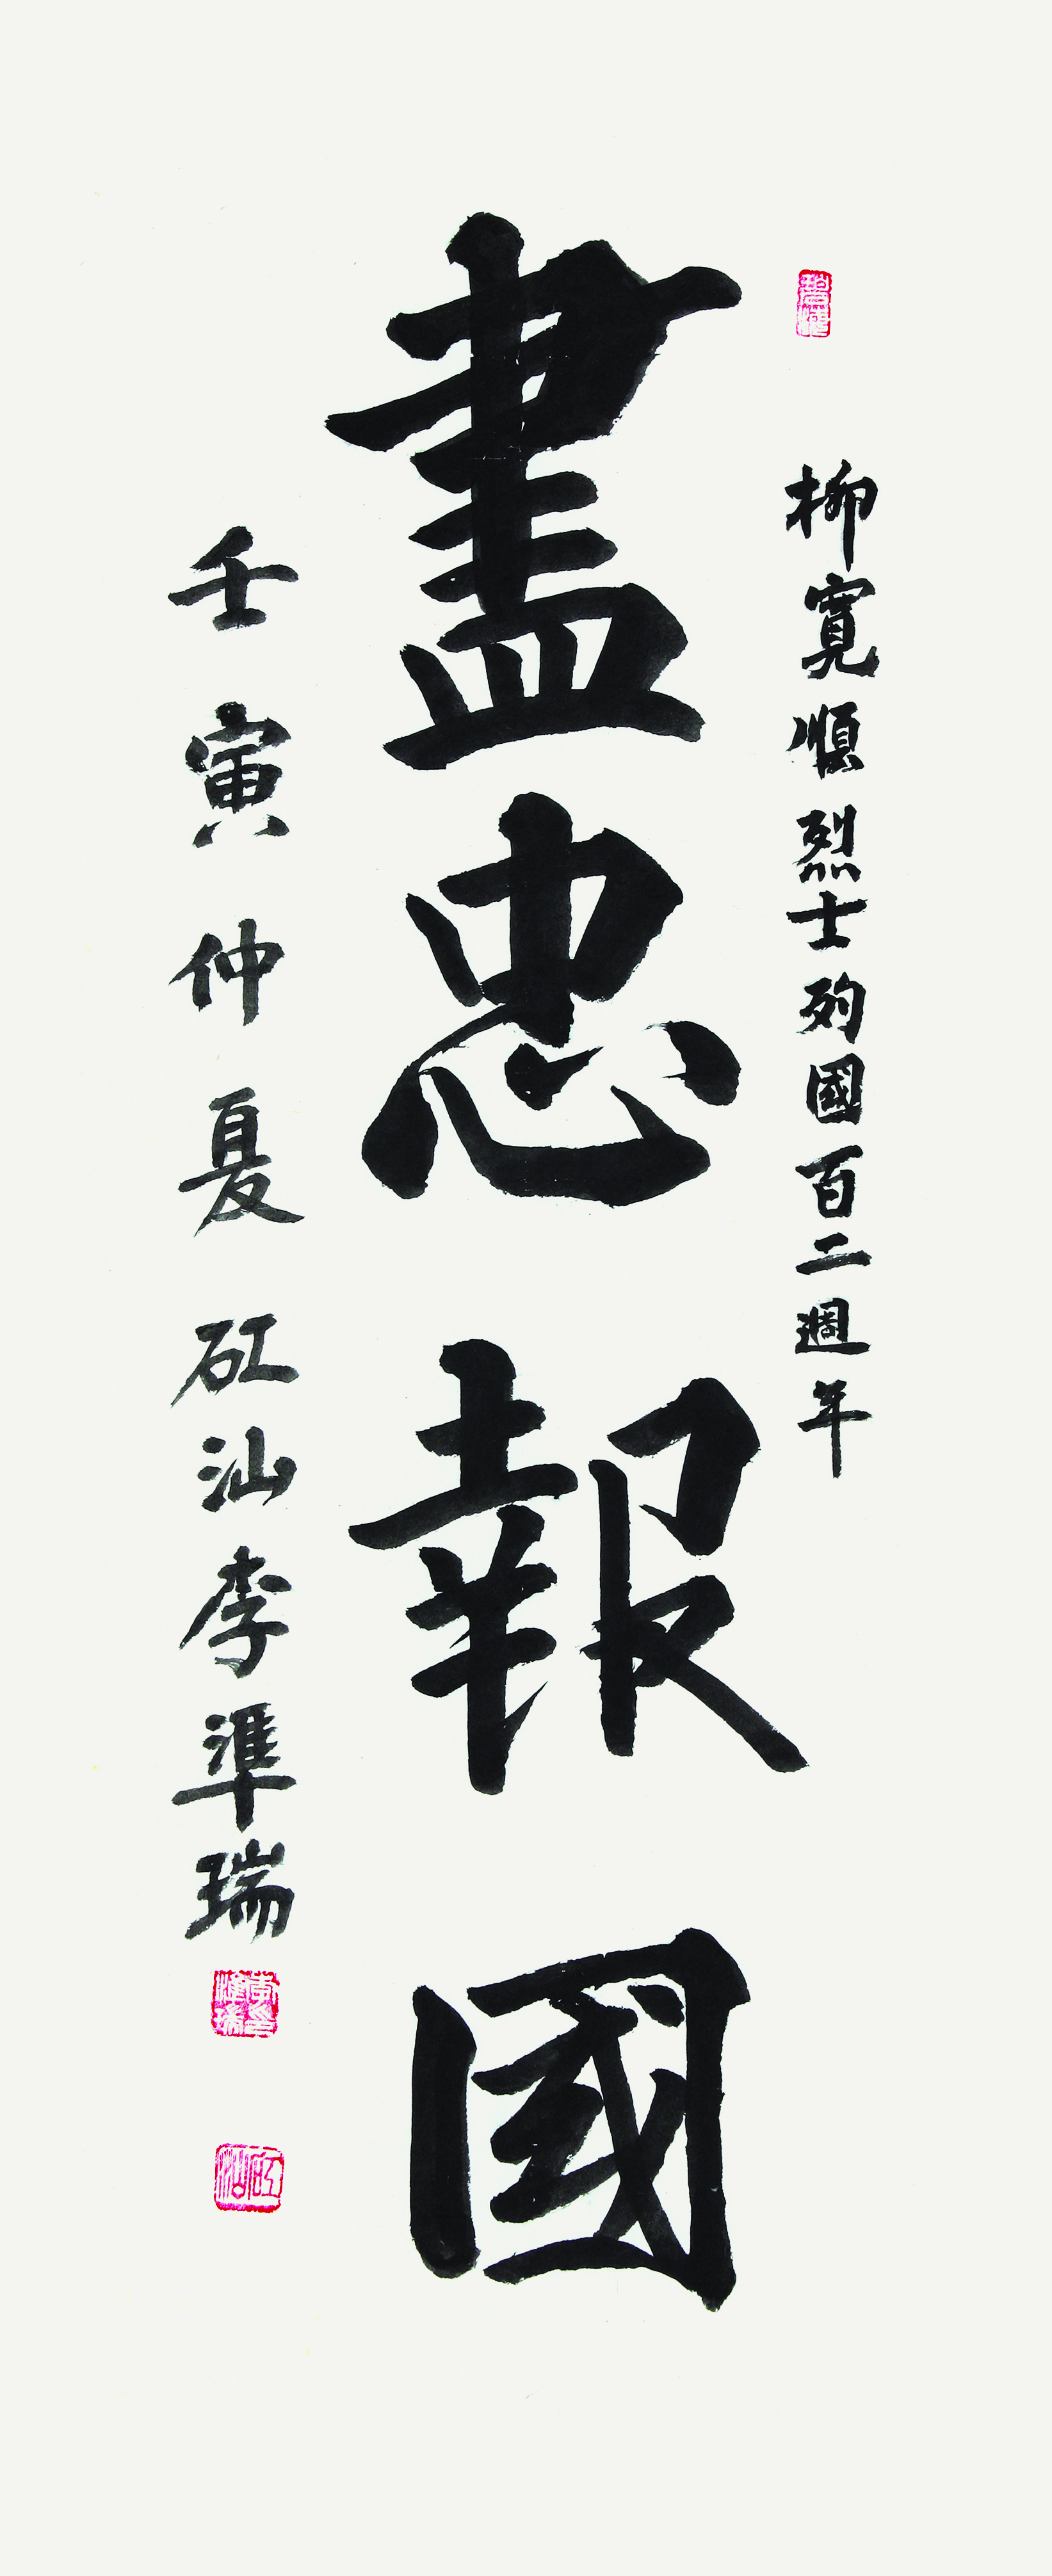 柳寬順烈士殉國百二週年
盡忠報國
壬寅仲夏 矼汕李準瑞
矼汕